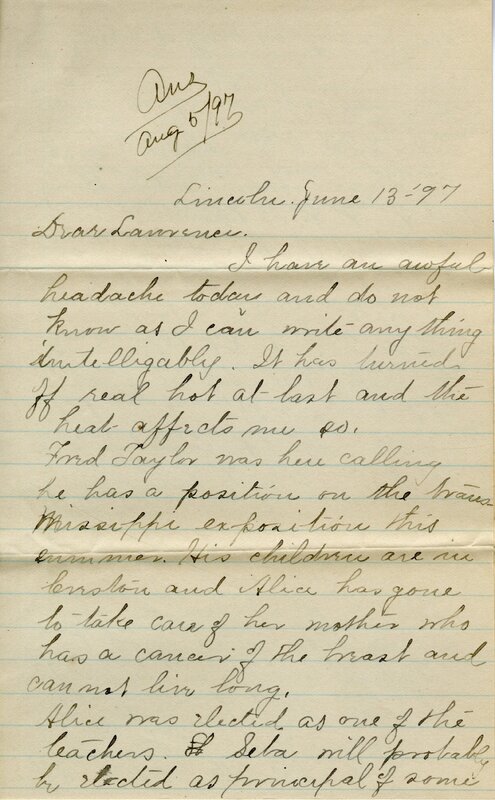 Ans
Aug 5/97
Lincoln. June 13-'97
Dear Lawrence.
I have an awful
headache today and do not
know as I can write anything
intelligably. It has turned
off real hot at last and the
heat affects me so.
Fred Taylor was here calling
he has a position on the trans
Missippi exposition this
summer. His children are in
Creston and Alice has gone
to take care of her mother who
has a cancer of the breast and
can not live long.
Alice was elected as one of the
teachers. Seba will probably
be elected as principal of some